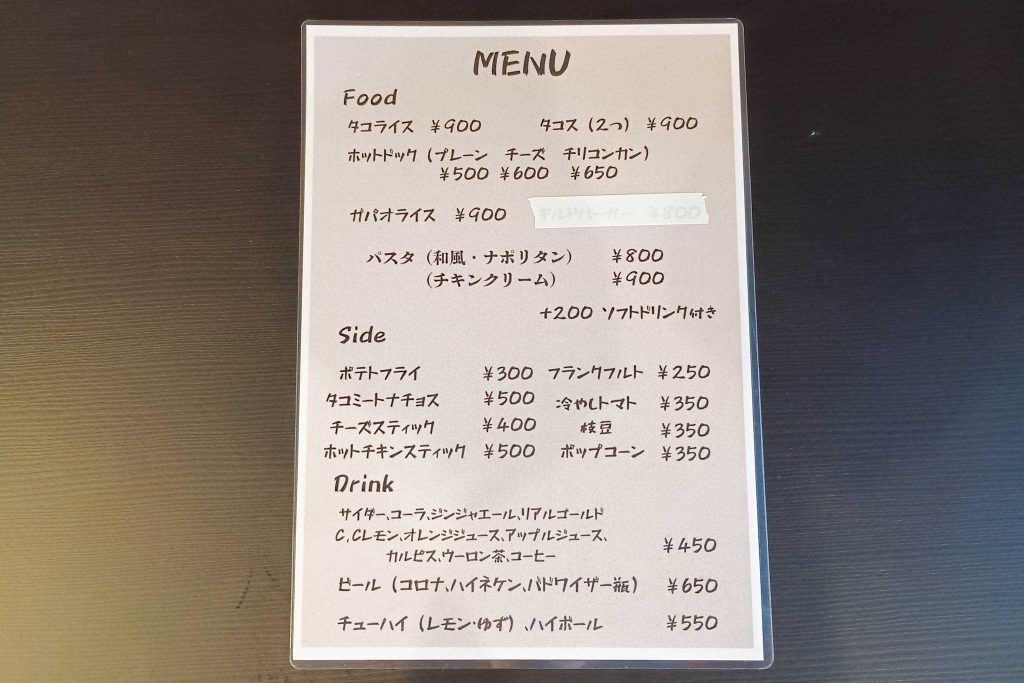 MENU
Food
タコライス ¥900 タコス（2つ）¥900
ホットドック（プレーン チーズ チリコンカン）
¥500 ¥600 ¥650
ガパオライス ¥900 ギルドバーガー ¥800
パスタ（和風・ナポリタン） ¥800
（チキンクリーム） ¥900
+200 ソフトドリンク付き
Side
ポテトフライ ¥300 フランクフルト ¥250
タコミートナチョス ¥500 冷やしトマト ¥350
チーズスティック ¥400 枝豆 ¥350
ホットチキンスティック ¥500 ポップコーン ¥350
Drink
サイダー、コーラ、ジンジャエール、リアルゴールド
C.Cレモン、オレンジジュース、アップルジュース、
カルピス、ウーロン茶、コーヒー ¥450
ビール（コロナ、ハイネケン、バドワイザー瓶） ¥650
チューハイ（レモン・ゆず）、ハイボール ¥550